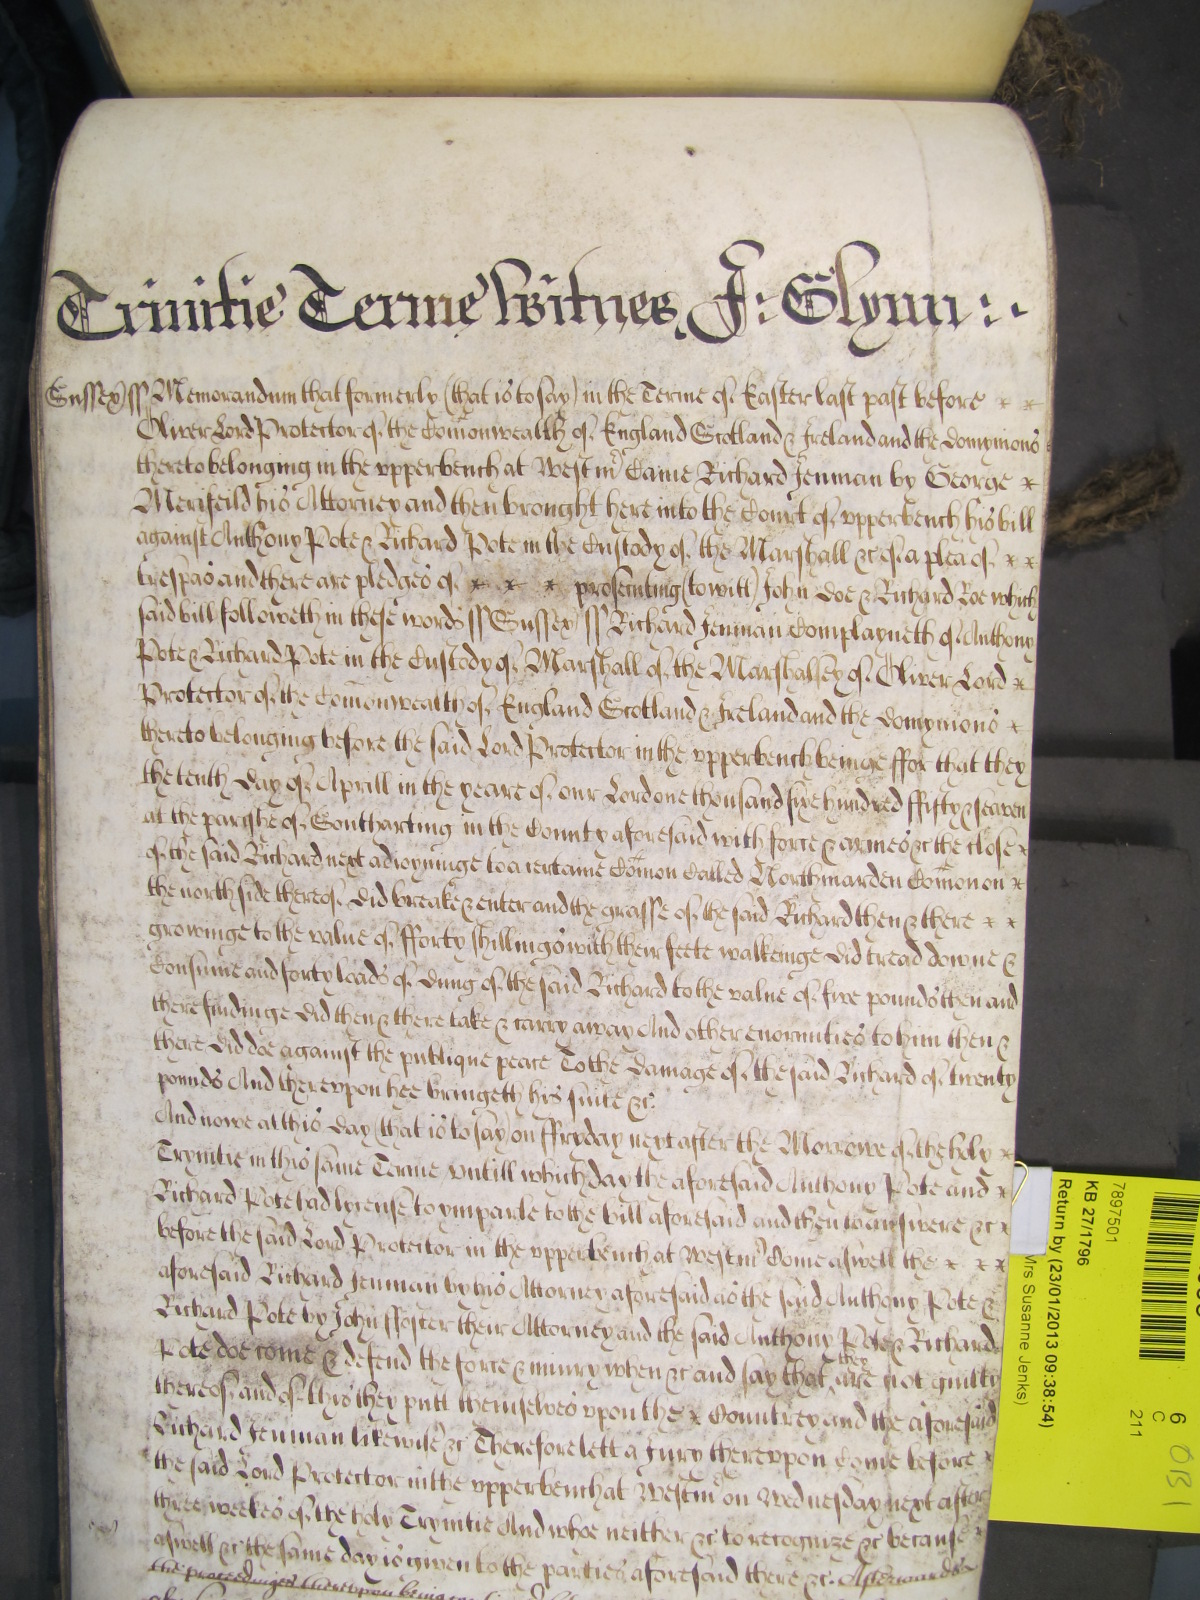 Trinitie Terme Witnes J: Glynn :.
Sussex ss Memorandum that formerly (that is to say) in the Terme of Easter last past before
Oliver Lord Protector of the Comonwealth of England Scotland & Ireland and the Domynions
thereto belonging in the upperbench at Westmr Came Richard Jenman by George
Merifeild his Attorney and then brought here into the Court of upperbench his bill
against Anthony Pote & Richard Pote in the Custody of the Marshall &c of a plea of
trespas and there are pledges of prosecuting (to witt) John Doe & Richard Roe which
said bill followeth in these words ss Sussex ss Richard Jenman Complayneth of Anthony
Pote & Richard Pote in the Custody of Marshall of the Marshalsey of Oliver Lord
Protector of the Comonwealth of England Scotland & Ireland and the Domynions
thereto belonging before the said Lord Protector in the upperbench beinge ffor that they
the tenth day of Aprill in the yeare of our Lord one thousand sixe hundred ffifty & seaven
at the parishe of Southarting in the County aforesaid with force & armes &c the close
of the said Richard next adioyninge to a certaine Comon called Northmarden Comon on
the north side thereof did breake & enter and the grasse of the said Richard then & there
growinge to the value of fforty shillings with their feete walkeinge did tread downe &
Consume and forty loads of dung of the said Richard to the value of five pounds then and
there findinge did then & there take & carry away And other enormities to him then &
there did doe against the publique peace To the damage of the said Richard of twenty
pounds And thereupon hee bringeth his suite &c.
And nowe at this day (that is to say) on ffryday next after the Morrowe of the holy
Trynitie in this same Terme untill which day the aforesaid Anthony Pote and
Richard Pote had lycense to ymparle to the bill aforesaid and then to answere &c
before the said Lord Protector in the upperbench at Westmr Come aswell the
aforesaid Richard Jenman by his Attorney aforesaid as the said Anthony Pote &
Richard Pote by John ffoster their Attorney and the said Anthony Pote & Richard
Pote doe come & defend the force & iniury when &c and say that they are not guilty
thereof and of this they putt themselves upon the Countrey and the aforesaid
Richard Jenman likewise &c Therefore lett a Jury thereupon Come before
the said Lord Protector in the upperbench at Westmr on Wednesday next after
three weekes of the holy Trynitie And whoe neither &c to recognize &c because
aswell &c the same day is given to the parties aforesaid there &c. Afterwards
the proceedinges thereupon being
7897501
KB 27/1796
Return by (23/01/2013 09:38:54)
Mrs Susanne Jenks)
6
C
211